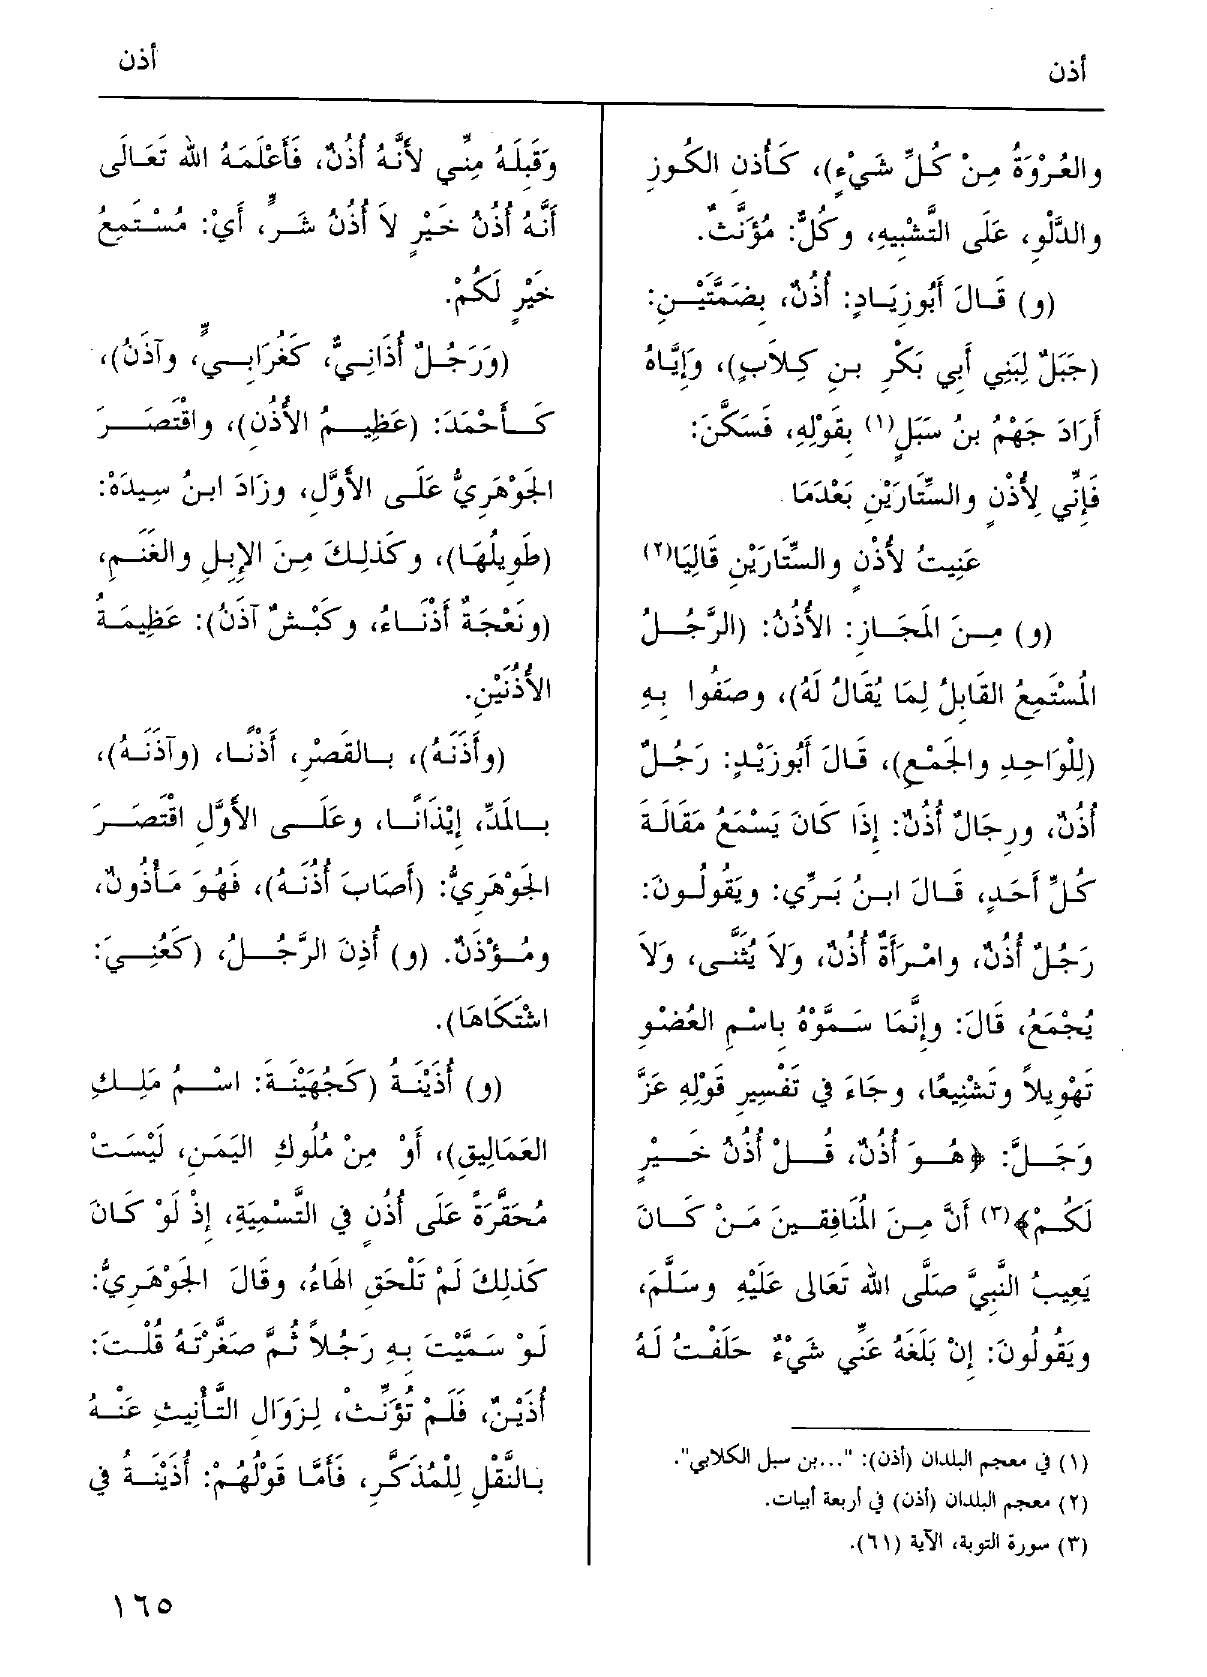 أذن
أذن
والعُرْوَةُ مِنْ كُلِّ شَيْءٍ)، كَأُذنِ الكُوزِ
والدَّلْوِ، عَلَى التَّشْبِيهِ، وكُلٌّ: مُؤَنَّثٌ.
(و) قَالَ أَبُوزِيَادٍ: أُذُنٌ، بِضَمَّتَيْنِ:
(جَبَلٌ لِبَنِي أَبِي بَكْرِ بنِ كِلاَبٍ)، وَإِيَّاهُ
أَرَادَ جَهْمُ بنُ سَبَلٍ(١) بِقَوْلِهِ، فَسَكَّنَ:
فَإِنِّي لِأُذْنٍ والسِّتَارَيْنِ بَعْدَمَا
عَنِيتُ لأُذْنٍ والسِّتَارَيْنِ قَالِيَا(٢)
(و) مِنَ المَجَازِ: الأُذُنُ: (الرَّجُلُ
المُسْتَمِعُ القَابِلُ لِمَا يُقَالُ لَهُ)، وصَفُوا بِهِ
(لِلْوَاحِدِ والجَمْعِ)، قَالَ أَبُوزَيْدٍ: رَجُلٌ
أُذُنٌ، ورِجَالٌ أُذُنٌ: إِذَا كَانَ يَسْمَعُ مَقَالَةَ
كُلِّ أَحَدٍ، قَالَ ابنُ بَرِّي: ويَقُولُونَ:
رَجُلٌ أُذُنٌ، وامْرَأَةٌ أُذُنٌ، وَلاَ يُثَنَّى، وَلاَ
يُجْمَعُ، قَالَ: وإِنَّمَا سَمَّوْهُ بِاسْمِ العُضْوِ
تَهْوِيلاً وتَشْنِيعًا، وجَاءَ فِي تَفْسِيرِ قَوْلِهِ عَزَّ
وَجَلَّ: ﴿هُوَ أُذُنٌ، قُلْ أُذُنُ خَيْرٍ
لَكُمْ﴾(٣) أَنَّ مِنَ المُنَافِقِينَ مَنْ كَانَ
يَعِيبُ النَّبِيَّ صَلَّى الله تَعَالَى عَلَيْهِ وسَلَّمَ،
ويَقُولُونَ: إِنْ بَلَغَهُ عَنِّي شَيْءٌ حَلَفْتُ لَهُ
(١) في معجم البلدان (أذن): "...بن سبل الكلابي".
(٢) معجم البلدان (أذن) في أربعة أبيات.
(٣) سورة التوبة، الآية (٦١).
وَقَبِلَهُ مِنِّي لأَنَّهُ أُذُنٌ، فَأَعْلَمَهُ الله تَعَالَى
أَنَّهُ أُذُنُ خَيْرٍ لاَ أُذُنُ شَرٍّ، أَيْ: مُسْتَمِعُ
خَيْرٍ لَكُمْ.
(وَرَجُلٌ أُذَانِيٌّ، كَغُرَابِيٍّ، وآذَنُ)،
كَأَحْمَدَ: (عَظِيمُ الأُذُنِ)، واقْتَصَرَ
الجَوْهَرِيُّ عَلَى الأَوَّلِ، وزَادَ ابنُ سِيدَهْ:
(طَوِيلُهَا)، وكَذلِكَ مِنَ الإِبِلِ والغَنَمِ،
(ونَعْجَةٌ أَذْنَاءُ، وكَبْشٌ آذَنُ): عَظِيمَةُ
الأُذُنَيْنِ.
(وأَذَنَهُ)، بالقَصْرِ، أَذْنًا، (وآذَنَهُ)،
بالمَدِّ، إِيْذَانًا، وعَلَى الأَوَّلِ اقْتَصَرَ
الجَوْهَرِيُّ: (أَصَابَ أُذُنَهُ)، فَهُوَ مَأْذُونٌ،
ومُؤْذَنٌ. (و) أُذِنَ الرَّجُلُ، (كَعُنِيَ:
اشْتَكَاهَا).
(و) أُذَيْنَةُ (كَجُهَيْنَةَ: اسْمُ مَلِكِ
العَمَالِيقِ)، أَوْ مِنْ مُلُوكِ اليَمَنِ، لَيْسَتْ
مُحَقَّرَةً عَلَى أُذُنٍ فِي التَّسْمِيَةِ، إِذْ لَوْ كَانَ
كَذلِكَ لَمْ تَلْحَقِ الهَاءُ، وقَالَ الجَوْهَرِيُّ:
لَوْ سَمَّيْتَ بِهِ رَجُلاً ثُمَّ صَغَّرْتَهُ قُلْتَ:
أُذَيْنٌ، فَلَمْ تُؤَنِّثْ، لِزَوَالِ التَّأْنِيثِ عَنْهُ
بِالنَّقْلِ لِلْمُذَكَّرِ، فَأَمَّا قَوْلُهُمْ: أُذَيْنَةُ فِي
١٦٥